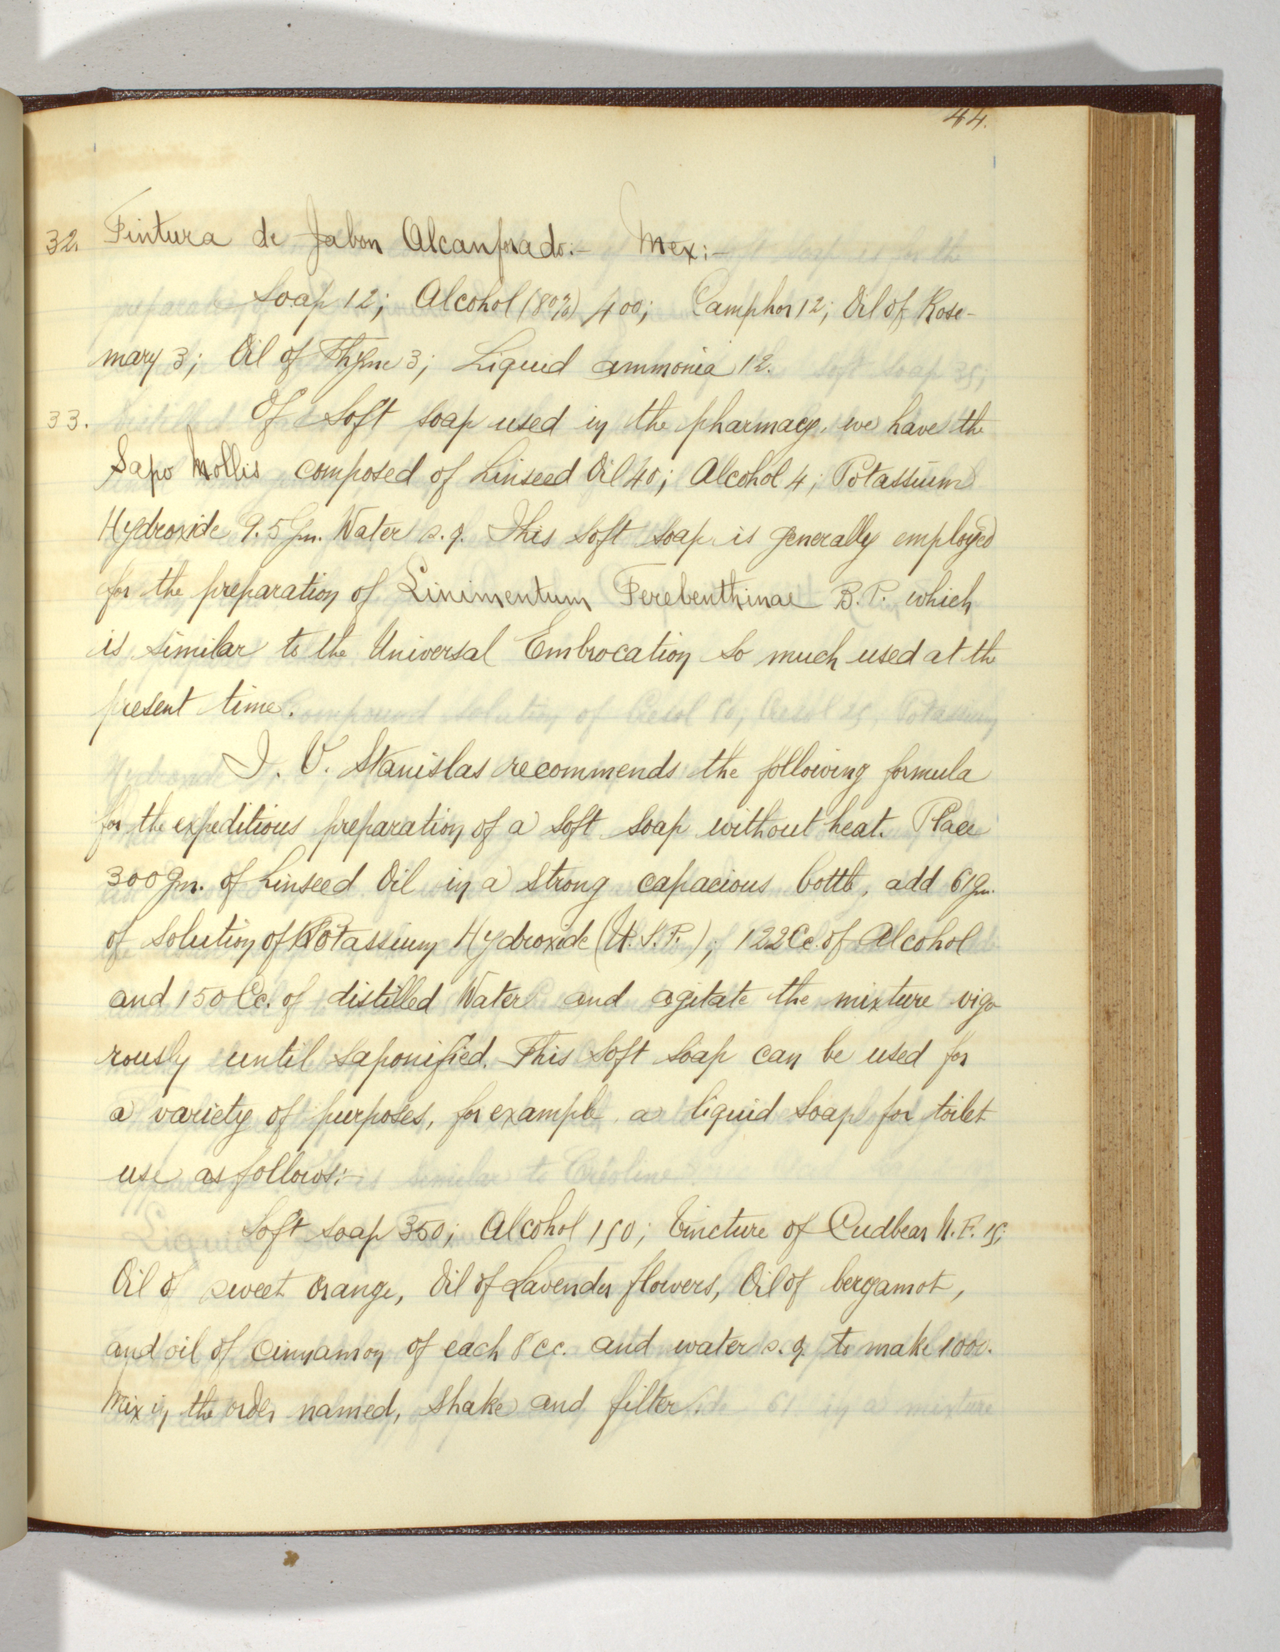 44.
32. Tintura de Jabon Alcanforado:- Mex:-
Soap 12; Alcohol (80%) 400; Camphor 12; Oil of Rose-
mary 3; Oil of Thyme 3; Liquid ammonia 12.
33. Of soft soap used in the pharmacy, we have the
Sapo Mollis composed of Linseed Oil 40; Alcohol 4; Potassium
Hydroxide 9.5 Gm. Water s.q. This soft soap is generally employed
for the preparation of Linimentum Terebenthinae B.P. which
is similar to the Universal Embrocation so much used at the
present time.
I. V. Stanislas recommends the following formula
for the expeditious preparation of a soft soap without heat. Place
300 Gm. of Linseed Oil in a strong capacious bottle, add 61 Gm.
of solution of Potassium Hydroxide (U.S.P.); 122 Cc. of Alcohol
and 150 Cc. of distilled Water and agitate the mixture vigo
rously until saponified. This soft soap can be used for
a variety of purposes, for example a liquid soap for toilet
use as follows:-
Soft soap 350; Alcohol 150; tincture of Cudbear N.F. 15;
Oil of sweet orange, Oil of Lavender flowers, Oil of bergamot,
and oil of cinnamon of each 8 cc. and water s.q. to make 1000.
Mix in the order named, shake and filter.